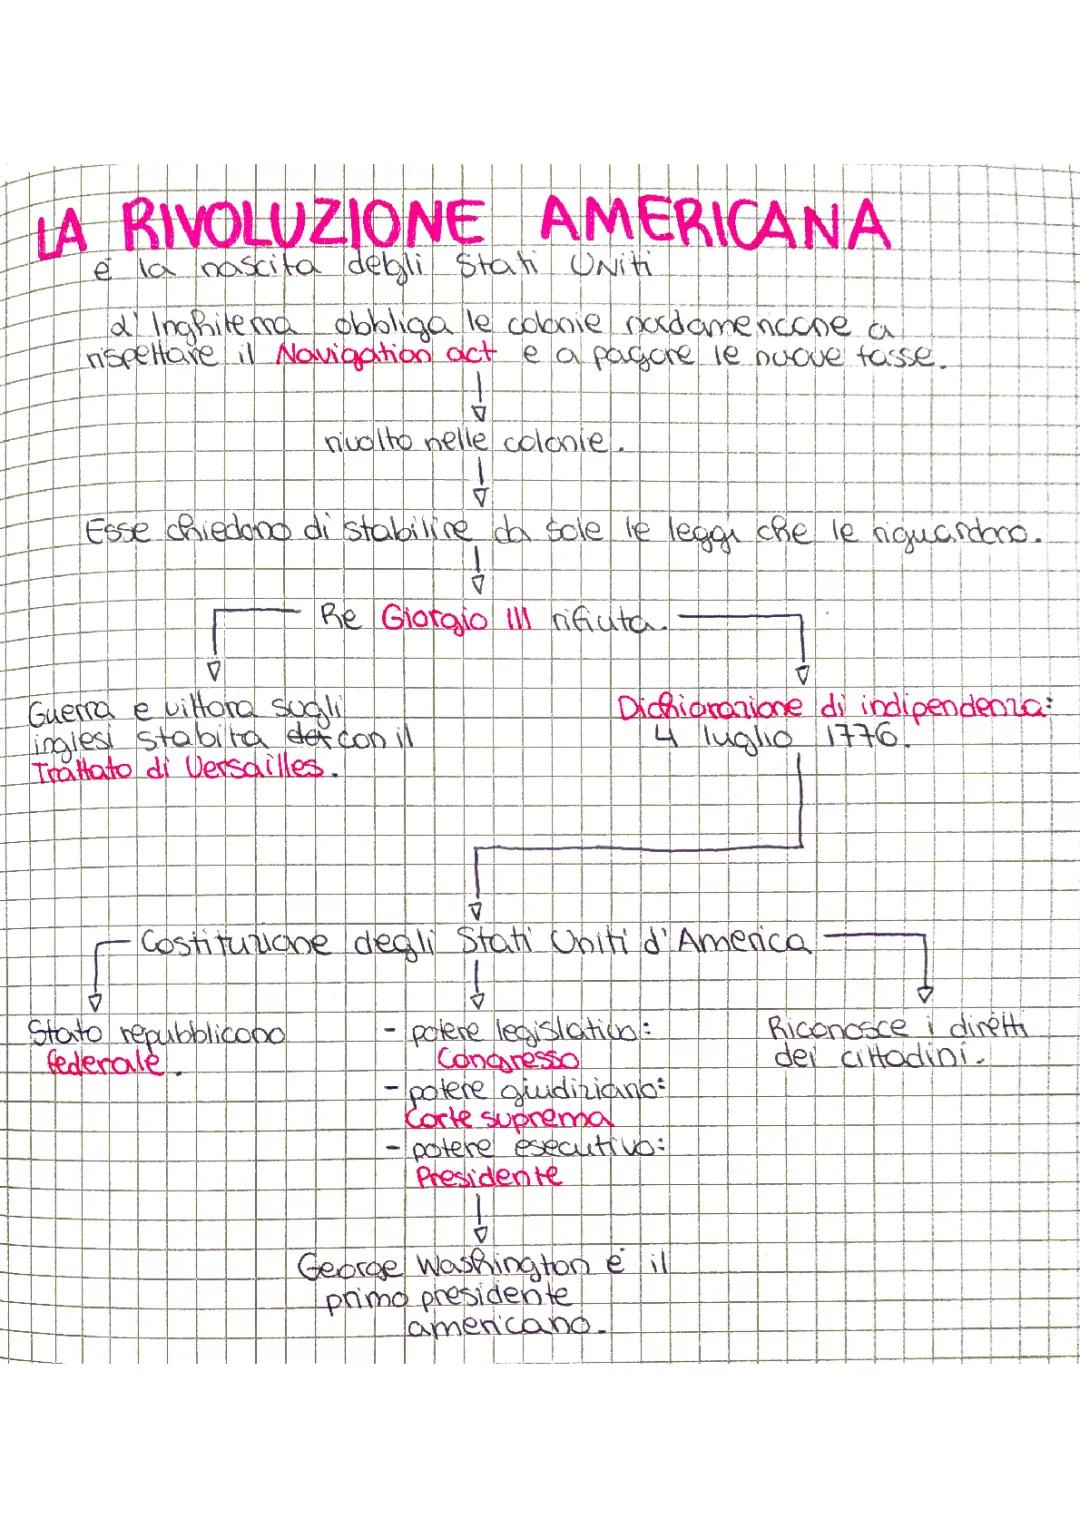 LA RIVOLUZIONE AMERICANA
e la nascita degli Stati Uniti
L'Inghiterra obbliga le colonie nordamericane a
rispettare il Navigation act e a pagare le nuove tasse.
rivolto nelle colonie.
Esse chiedono di stabilire da sole le leggi che le riguardano.
Re Giorgio III rifiuta.
Guerra e vittora sugli
inglesi stabita con il
Trattato di Versailles.
Dichiarazione di indipendenza:
4 luglio 1776.
Costituzione degli Stati Uniti d'America
Stato repubblicano
federale.
- potere legislativo:
Congresso
- potere giudiziario:
Corte suprema
- potere esecutivo:
Presidente
Riconosce i diretti
dei cittadini.
George Washington è il
primo presidente
americano.